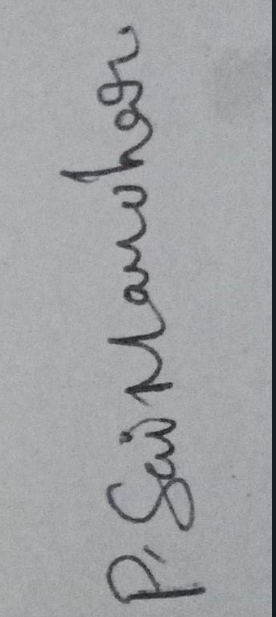 P. Sai Manohar